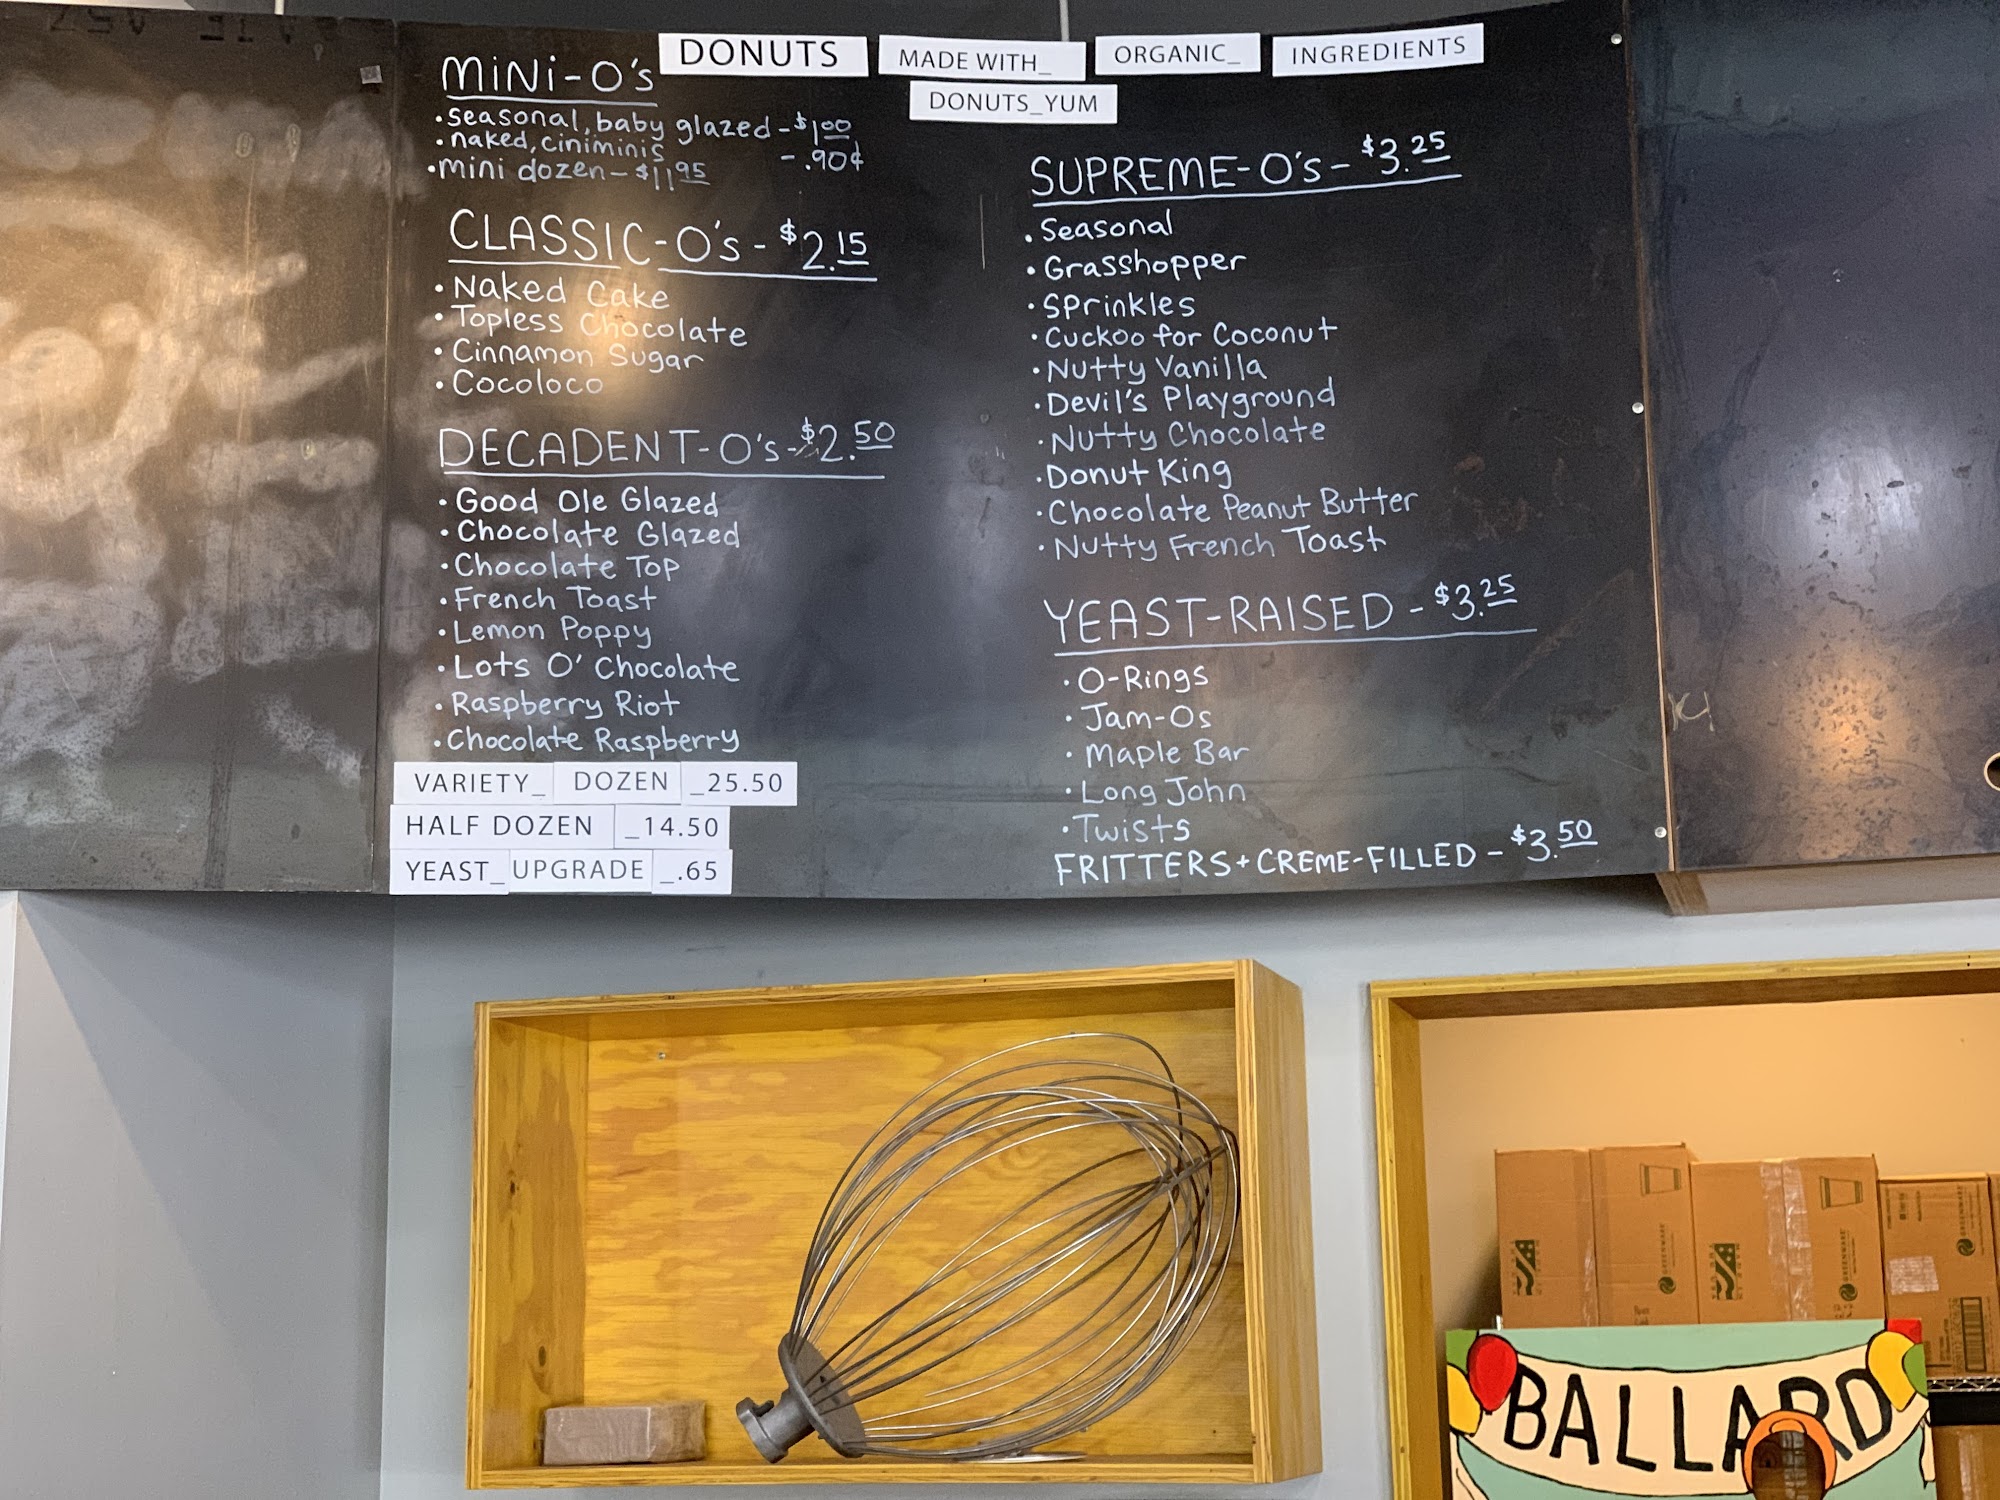 DONUTS MADE WITH_ ORGANIC_ INGREDIENTS
DONUTS_YUM
MiNi-O's
•seasonal, baby glazed -$1.00
•naked, ciniminis - .90¢
•mini dozen - $11.95
CLASSIC-O's - $2.15
•Naked Cake
•Topless Chocolate
•Cinnamon Sugar
•Cocoloco
DECADENT-O's-$2.50
•Good Ole Glazed
•Chocolate Glazed
•Chocolate Top
•French Toast
•Lemon Poppy
•Lots O' Chocolate
•Raspberry Riot
•Chocolate Raspberry
VARIETY_ DOZEN _25.50
HALF DOZEN _14.50
YEAST_ UPGRADE _.65
SUPREME-O's - $3.25
•Seasonal
•Grasshopper
•Sprinkles
•Cuckoo for Coconut
•Nutty Vanilla
•Devil's Playground
•Nutty Chocolate
•Donut King
•Chocolate Peanut Butter
•Nutty French Toast
YEAST-RAISED - $3.25
•O-Rings
•Jam-Os
•Maple Bar
•Long John
•Twists
FRITTERS + CREME-FILLED - $3.50
GREENWARE
GREENWARE
BALLARD